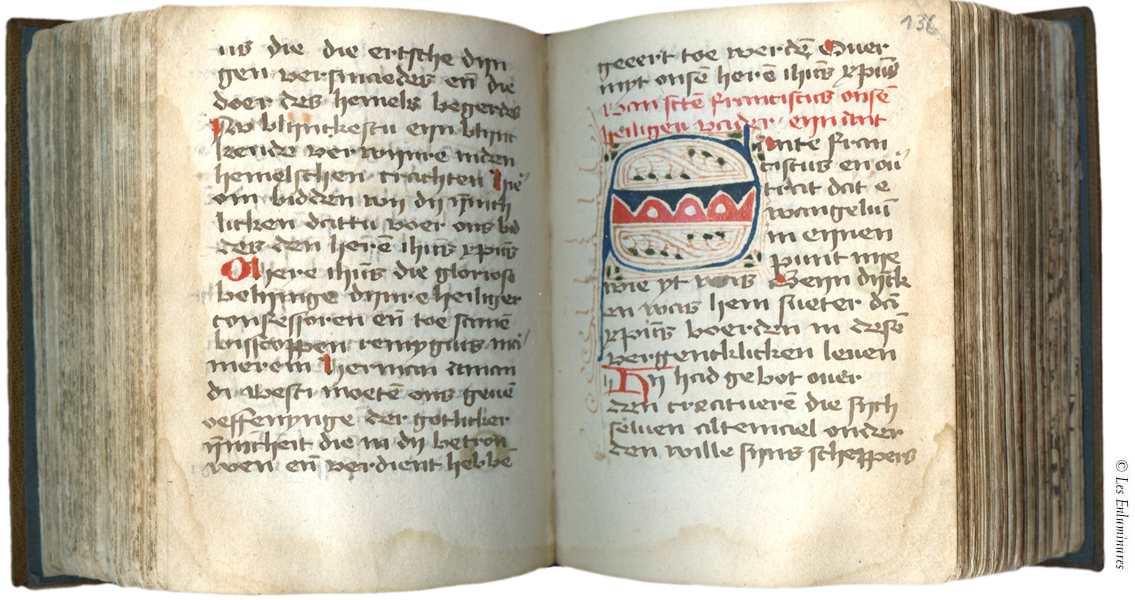 us die die ertsche dyn
gen versmaedes eñ die
doer des hemels begerdes
Nv blijnckestu eyn blijnc
kende verwijnre inden
hemelschen crachten hie
om bidden wy dij ijnnich
licken dattu voer ons bid
des den herē ihūs xpūs
O here ihūs die gloriose
behijnge dijnre heiliger
confessoren eñ toe samē
busscoppen remygius
meren herman aman
di vestr moetē ons geuē
oeffenynge der gotlicker
ijnnicheit die in dij betrou
wen eñ verdient hebbē
136
geeert toe werdē Ouer
myt onsē herē ihūs xpūs
van sctē franciscus onsē
heiligen vader eyn ant
ante fran
ciscus en ou
trat dat e
wangeliū
in eynen
punt nye
wie yt was Seyn dijck
en was hem sueter dā
xpūs boerden in desē
vergencklicken leuen
Hij had gebot ouer
den creatuerē die sych
seluen altemael onder
den wille sijns scheppers
© Les Enluminures